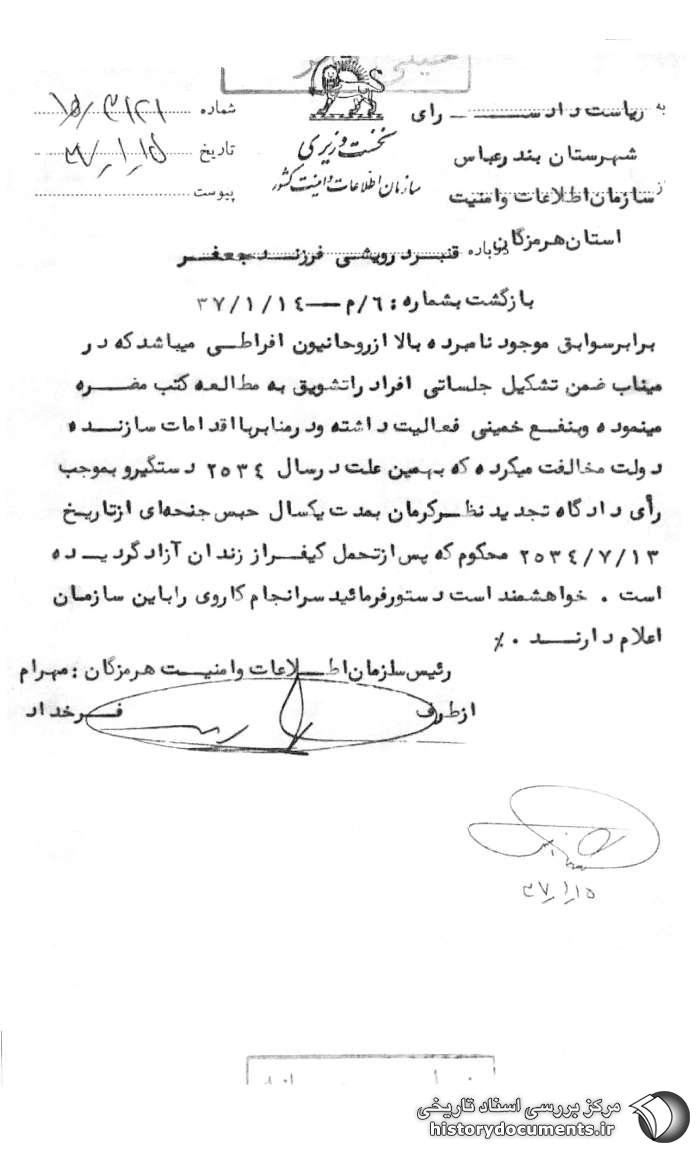 خیلی
به ریاست دادســـــرای
شماره ۱۵/۳۱۲۱
نخست وزیری
شهرستان بندرعباس
تاریخ ۳۷/۱/۱۵
سازمان اطلاعات و امنیت کشور
از سازمان اطلاعات وامنیت
پیوست
استان هرمزگان
درباره قنبردرویشی فرزنــد جعفــر
بازگشت بشماره : ۶/م ــ ۳۷/۱/۱۴
برابرسوابق موجود نامبرده بالا ازروحانیون افراطــی میباشدکه در
میناب ضمن تشکیل جلساتی افراد راتشویق به مطالعه کتب مضــره
مینموده وبنفــع خمینی فعالیت داشته ودرمنابربااقدامات سازنــده
دولت مخالفت میکرده که بهمین علت درسال ۲۵۳۴ دستگیرو بموجب
رأی دادگاه تجدیدنظــرکرمان بمدت یکسال حبس جنحه‌ای ازتاریخ
۲۵۳٤/۷/۱۳ محکوم که پس ازتحمل کیفــراز زندان آزادگردیــده
است . خواهشمند است دستورفرمائیدسرانجام کاروی رابه‌این سازمان
اعلام دارنــد .٪
رئیس سازمان اطــلاعات وامنیــت هرمزگان : مهرام
ازطرف
فــرخداد
۳۷/۱/۱۵
مرکز بررسی اسناد تاریخی
historydocuments.ir